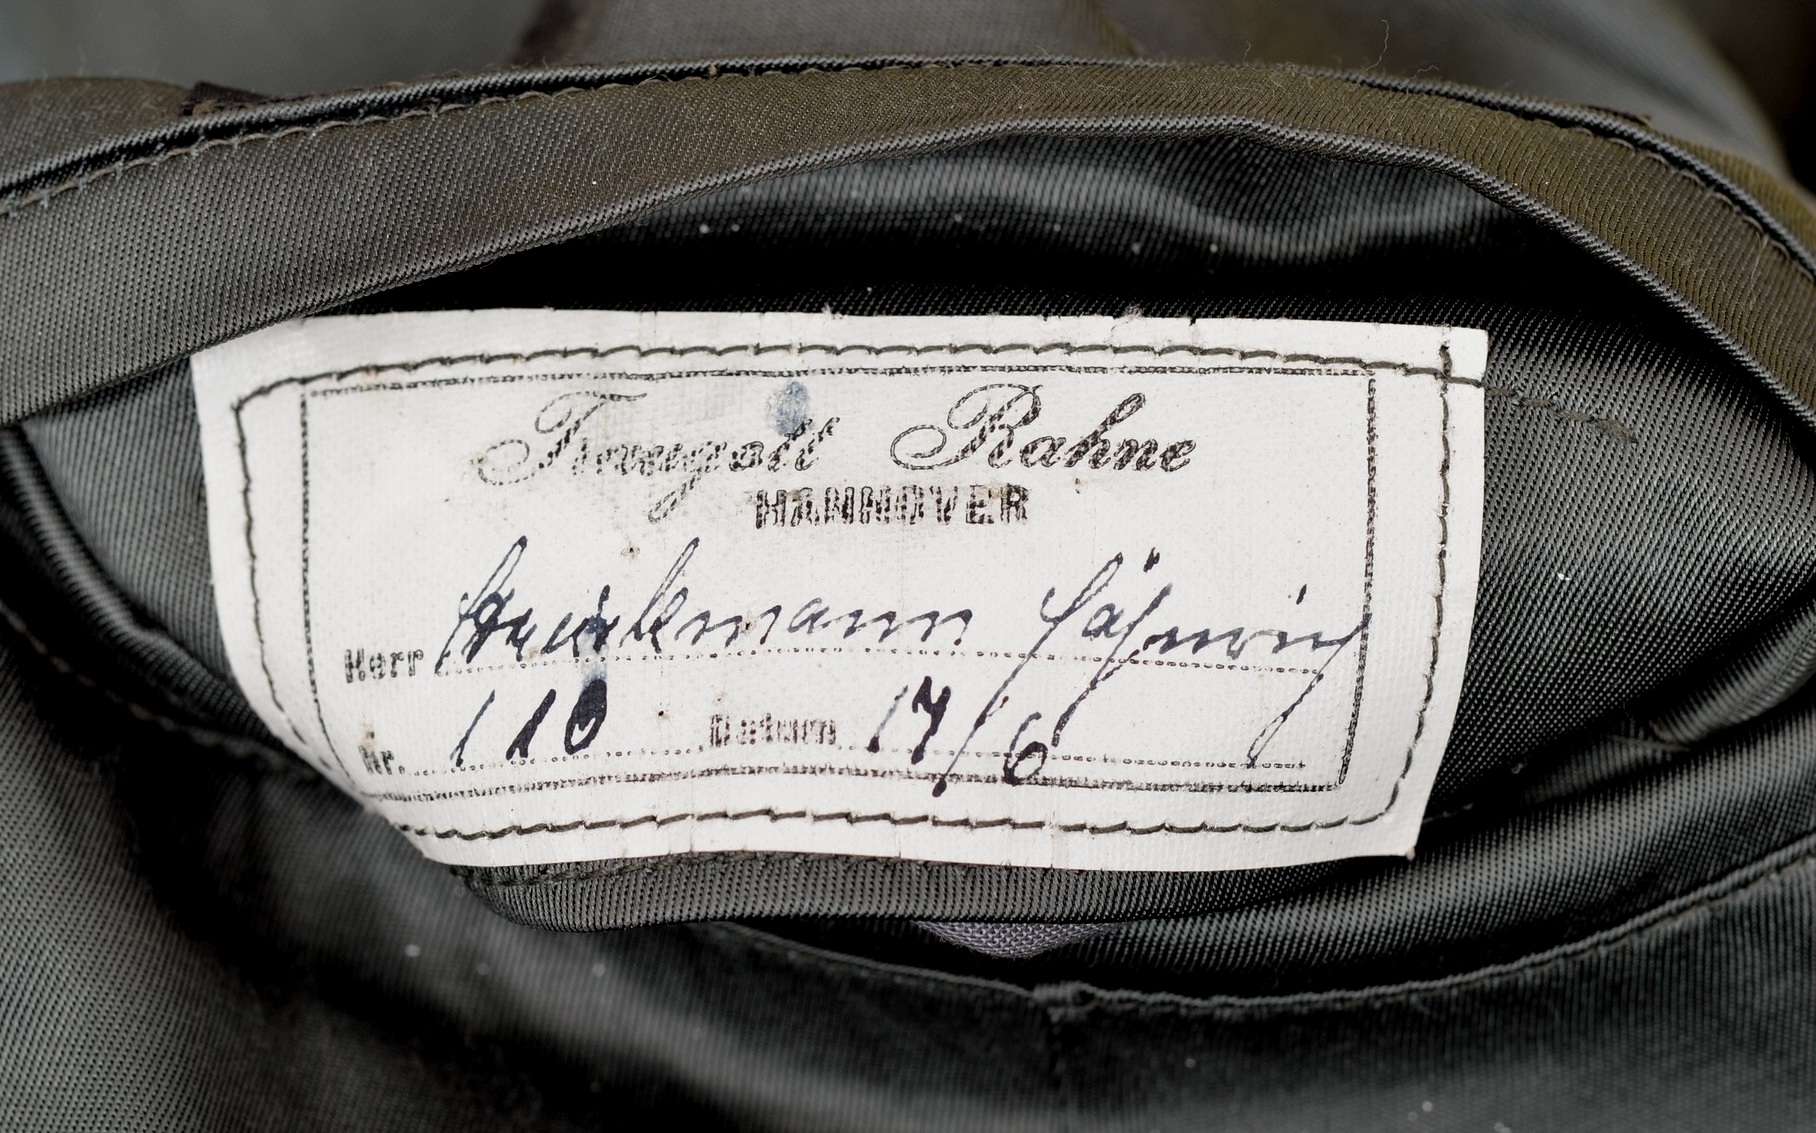 Traugott Rahne
HANNOVER
Herr Fähnrich
Nr. 110 Datum 17/6